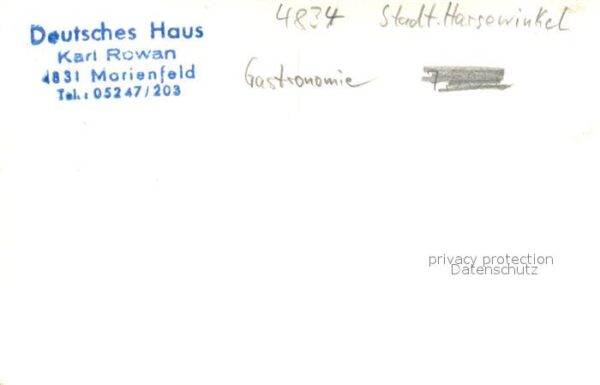 Deutsches Haus
Karl Rowan
4831 Marienfeld
Tel.: 05247/203
4834 Stadt. Harsewinkel
Gastronomie
privacy protection
Datenschutz